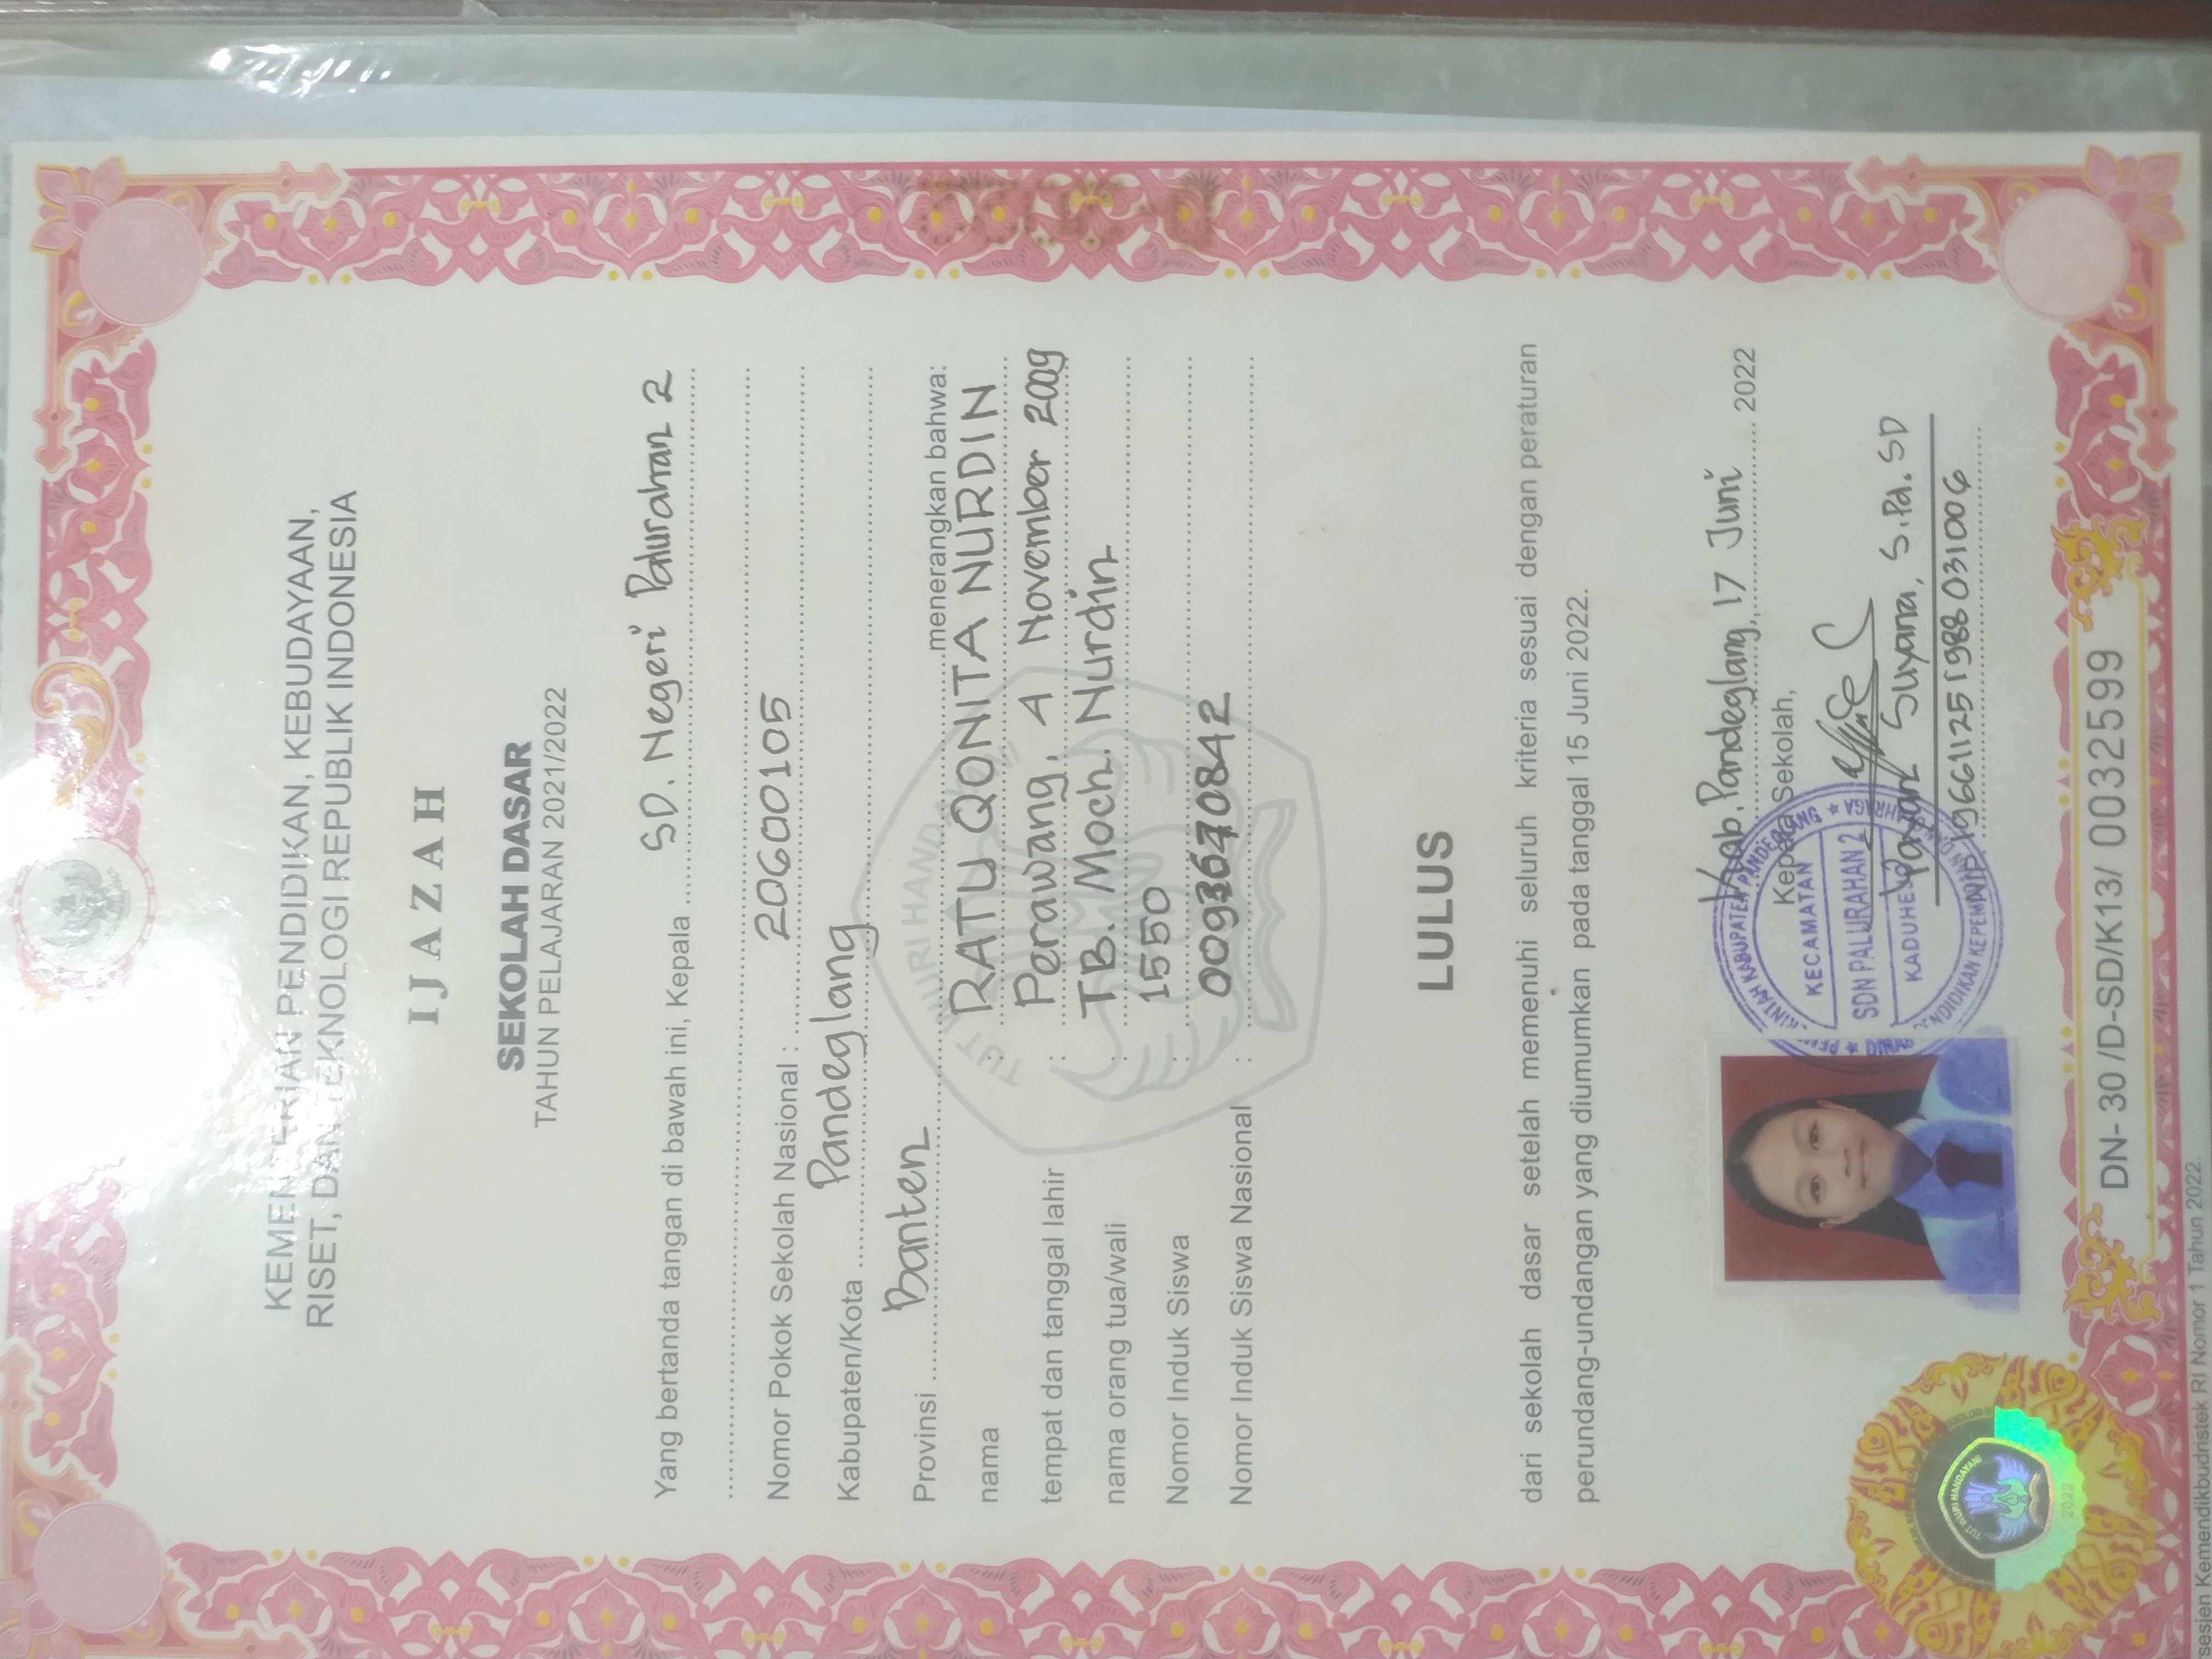 KEMENTERIAN PENDIDIKAN, KEBUDAYAAN,
RISET, DAN TEKNOLOGI REPUBLIK INDONESIA
IJAZAH
SEKOLAH DASAR
TAHUN PELAJARAN 2021/2022
Yang bertanda tangan di bawah ini, Kepala SD. Negeri Palurahan 2
Nomor Pokok Sekolah Nasional : 20600105
Kabupaten/Kota Pandeglang
Provinsi Banten menerangkan bahwa:
nama : RATU QONITA NURDIN
tempat dan tanggal lahir : Perawang, 4 November 2009
nama orang tua/wali : TB. Moch. Nurdin
Nomor Induk Siswa : 1550
Nomor Induk Siswa Nasional :
TUT WURI HANDAYANI
LULUS
dari sekolah dasar setelah memenuhi seluruh kriteria sesuai dengan peraturan
perundang-undangan yang diumumkan pada tanggal 15 Juni 2022.
Kab. Pandeglang, 17 Juni 2022
Kepala Sekolah,
KECAMATAN
SDN PALURAHAN 2
Suyana, S.Pd. SD
NIP 196611251988031006
TUT WURI HANDAYANI
2022
DN- 30 /D-SD/K13/ 0032599
Kemendikbudristek RI Nomor 1 Tahun 2022